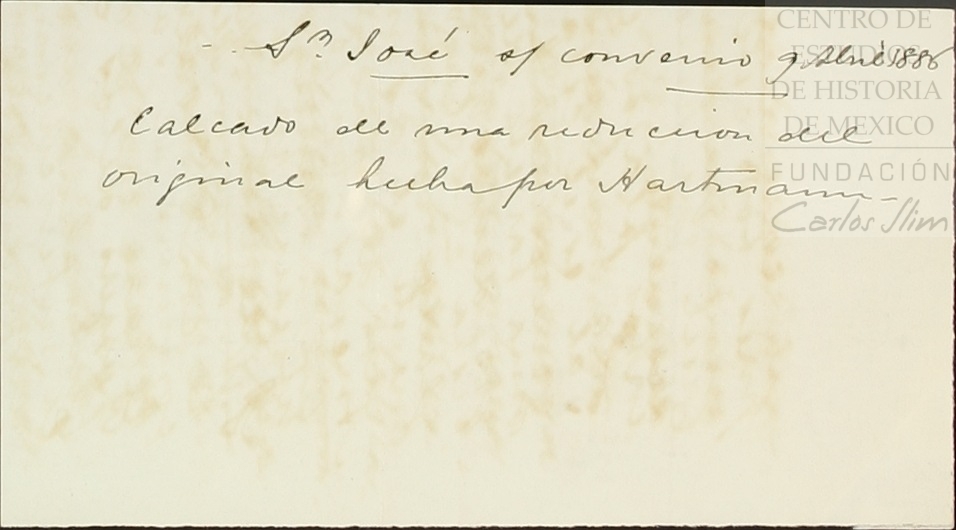 Sn. José s/ convenio 9 Abril 1886
Calcado de una reduccion del
original hecha por Hartmann_
CENTRO DE
ESTUDIOS
DE HISTORIA
DE MEXICO
FUNDACIÓN
Carlos Slim